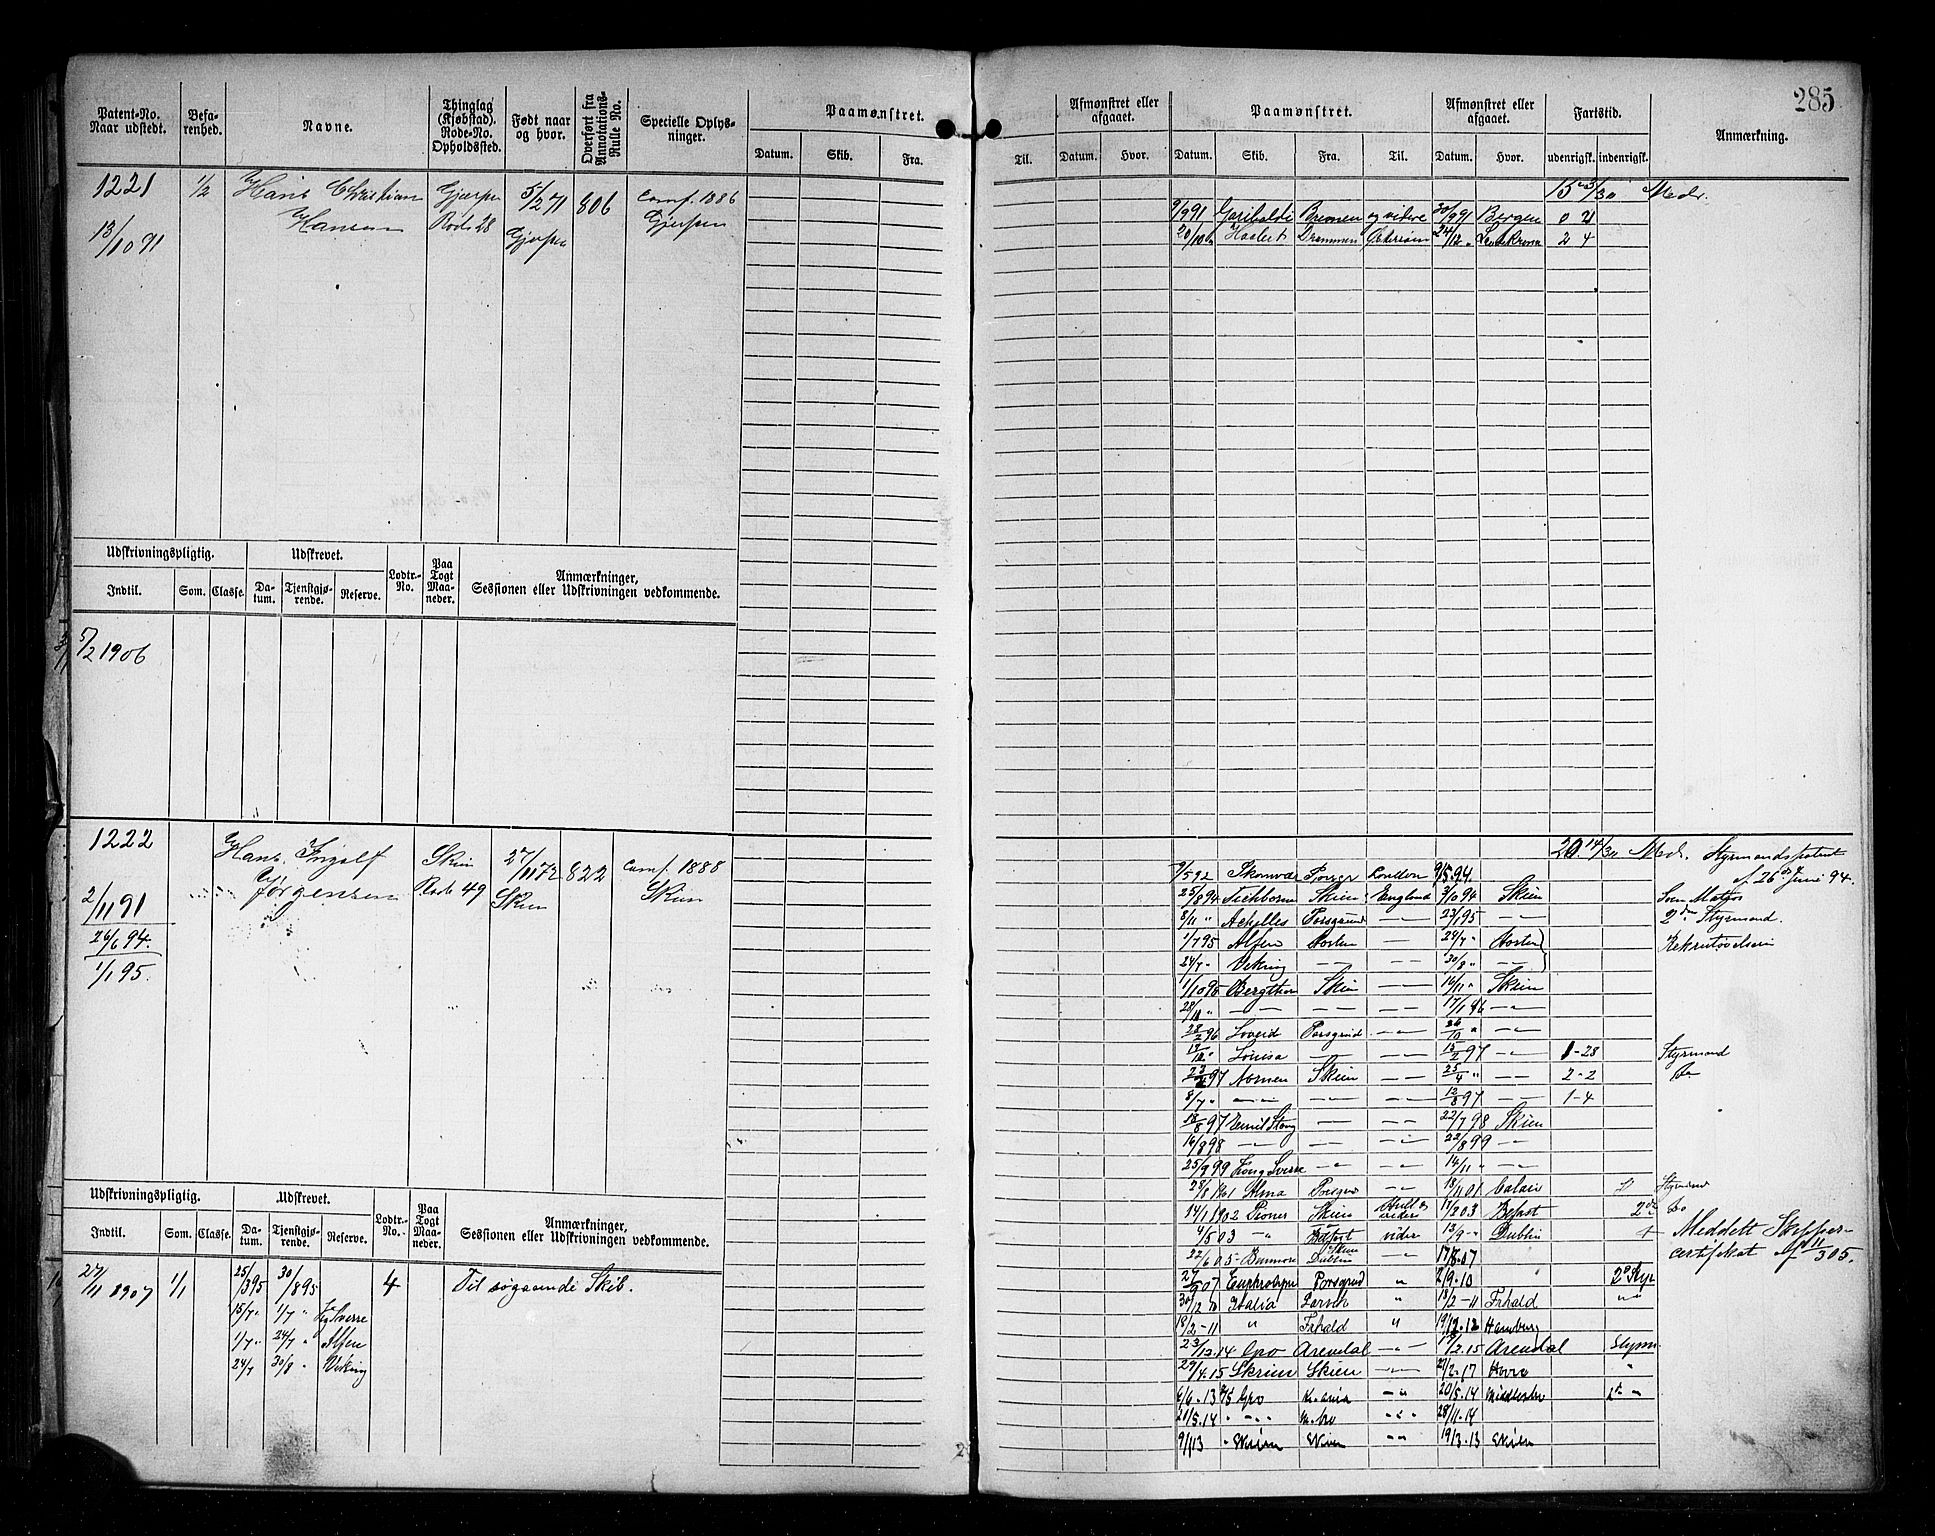 285
Patent-No. Naar udstedt.
Befarenhed.
Navne.
Thinglag (Kjøbstad). Rode-No. Opholdssted.
Født naar og hvor.
Overført fra Annotations-Rulle No.
Specielle Oplysninger.
Paamønstret.
Datum. Skib. Fra.
Til.
Afmønstret eller afgaaet.
Datum. Hvor.
Paamønstret.
Datum. Skib. Fra. Til.
Afmønstret eller afgaaet.
Datum. Hvor.
Fartstid.
udenrigsk. indenrigsk.
Anmærkning.
1221 1/2 Hans Christian Gjerpen 5/2 71 806 Conf. 1886
Hansen Rode 28 Gjerpen Gjerpen
13/10 91
15 3/30 Mdr.
9/9 91 Garibaldi Bremen og videre 30/9 91 Bergen 0 21
20/10 Haabet Drammen Østersøen 24/12 " Landskrona 2 4
Udskrivningspligtig. Udskrevet. Lodtr.-No. Paa Togt Maaneder. Anmærkninger, Sessionen eller Udskrivningen vedkommende.
Indtil. Som. Classe. Datum. Tjenstgjørende. Reserve.
5/2 1906
1222 Hans Ingolf Skien 27/11 72 822 Conf. 1888
Jørgensen Rode 49 Skien Skien
2/11 91
26/6 94.
1/1 95.
20 14/30 Mdr. Styrmandspatent
af 26de Juni 94.
9/5 92 London 9/5 94.
25/8 94 Skien England 3/10 94 Skien Som Matros
8/11 " Achylles Porsgrund — 23/1 95 — 2den Styrmand.
1/7 95 Alfen Horten — 24/7 " Horten Rekrutøvelsen
24/7 " Viking — — 30/8 " —
1/10 95 Bergthor Skien — 16/11 " Skien
28/11 " — — — 17/1 96 —
28/2 96 Løveid Porsgrund — 26/10 " —
Louisa — — 15/2 97 — 1-28 Styrmand
97 Normen Skien — 25/4 " — 2-2 Do
8/7 " — — 12/8 97 — 1-4
18/8 97 Emil Stang — — 22/7 98 Skien
16/8 98 — — — 22/8 99 —
25/9 99 Kong Sverre — — 14/11 " —
28/8 1901 Alma Porsgrd — 18/11 01 Calais Styrmand
14/1 1902 Pioner Skien Hull & videre 17/2 03 Belfast 2de Do
4/5 03 " Belfast vider 13/9 " Dublin Meddelt Skipper-
22/6 05 Dublin 17/8.07 certifikat af 11/3 05.
27/9 07 Euphrosyne Porsgrund " 2/9.10 2d Styr
30/12 10 Italia Larvik " 18/2-11 Frhald " "
18/2-11 " Frhald " 19/12.12 Hamburg
23/12.14 Gro Arendal — 17/2.15 Arendal Styrm
29/4.15 Skrien Skien — 21/2.17 Havre "
6/6.13 Gro Kr.ania " " 20/5.14 Middlesbro 1st "
21/5.14 " " M.bro " " 28/11.14
9/1 13 " Skien Skien " " 19/3.13 Skien
Udskrivningspligtig. Udskrevet. Lodtr.-No. Paa Togt Maaneder. Anmærkninger, Sessionen eller Udskrivningen vedkommende.
Indtil. Som. Classe. Datum. Tjenstgjørende. Reserve.
27/11 1907 1/1 25/3 95 30/8 95 4 Til søgaaende Skib.
15/7 " 1/7 " Kg Sverre
1/7 " 24/7 " Alfen
24/7 30/8 " Viking